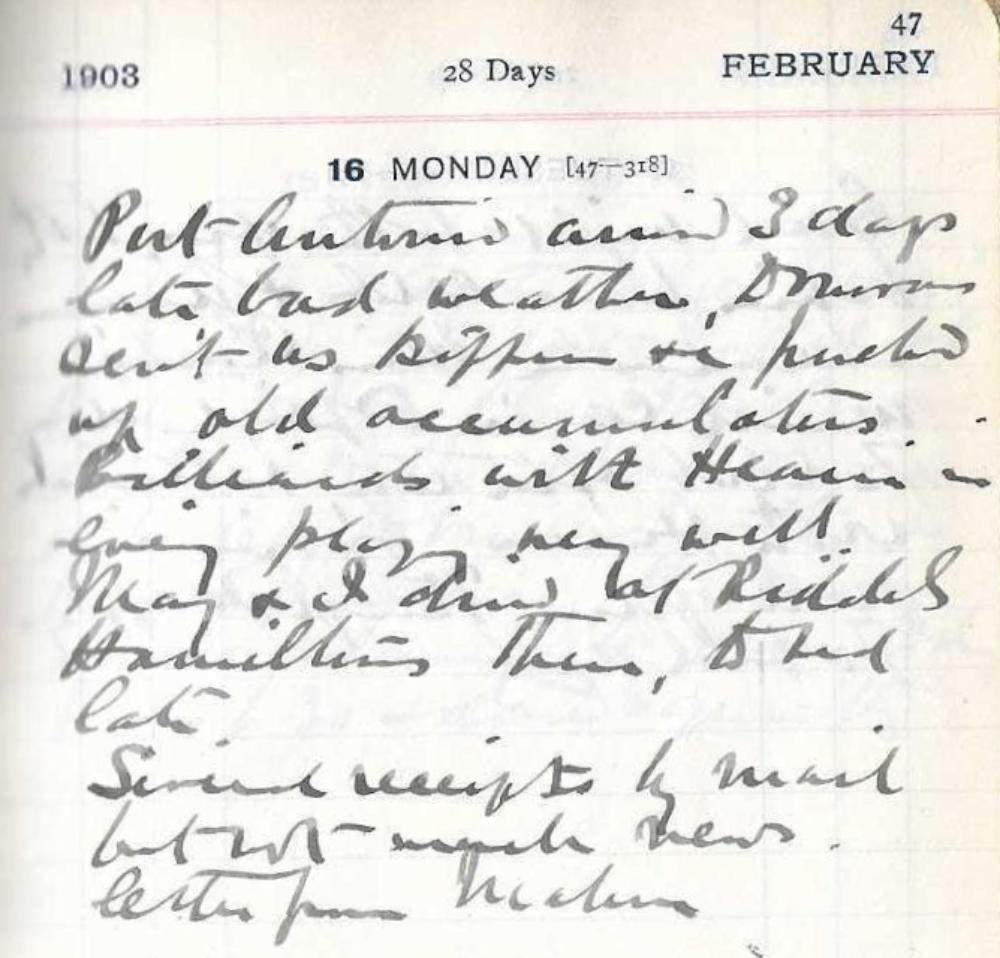 47
1903 28 Days FEBRUARY
16 MONDAY [47—318]
Port Antonio arrived 3 days
late bad weather, Donovans
sent us kippers &c packed
up old accumulators.
Billiards with Hearn in
evening playing very well.
May & I dined at Riddels
Hamiltons there, to bed
late.
Several receipts by mail
but not much news.
letter from